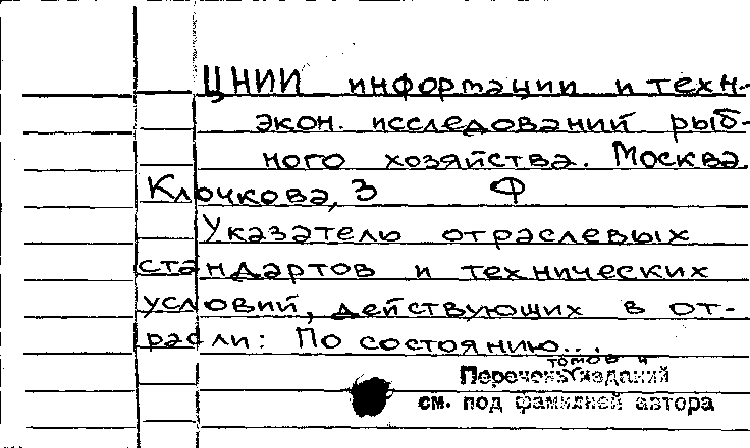 ЦНИИ информации и техн-
экон. исследований рыб-
ного хозяйства. Москва.
Ключкова, 3 Ф
Указатель отраслевых
стандартов и технических
условий, действующих в от-
расли: По состоянию...
томов и
Перечень изданий
см. под фамилией автора